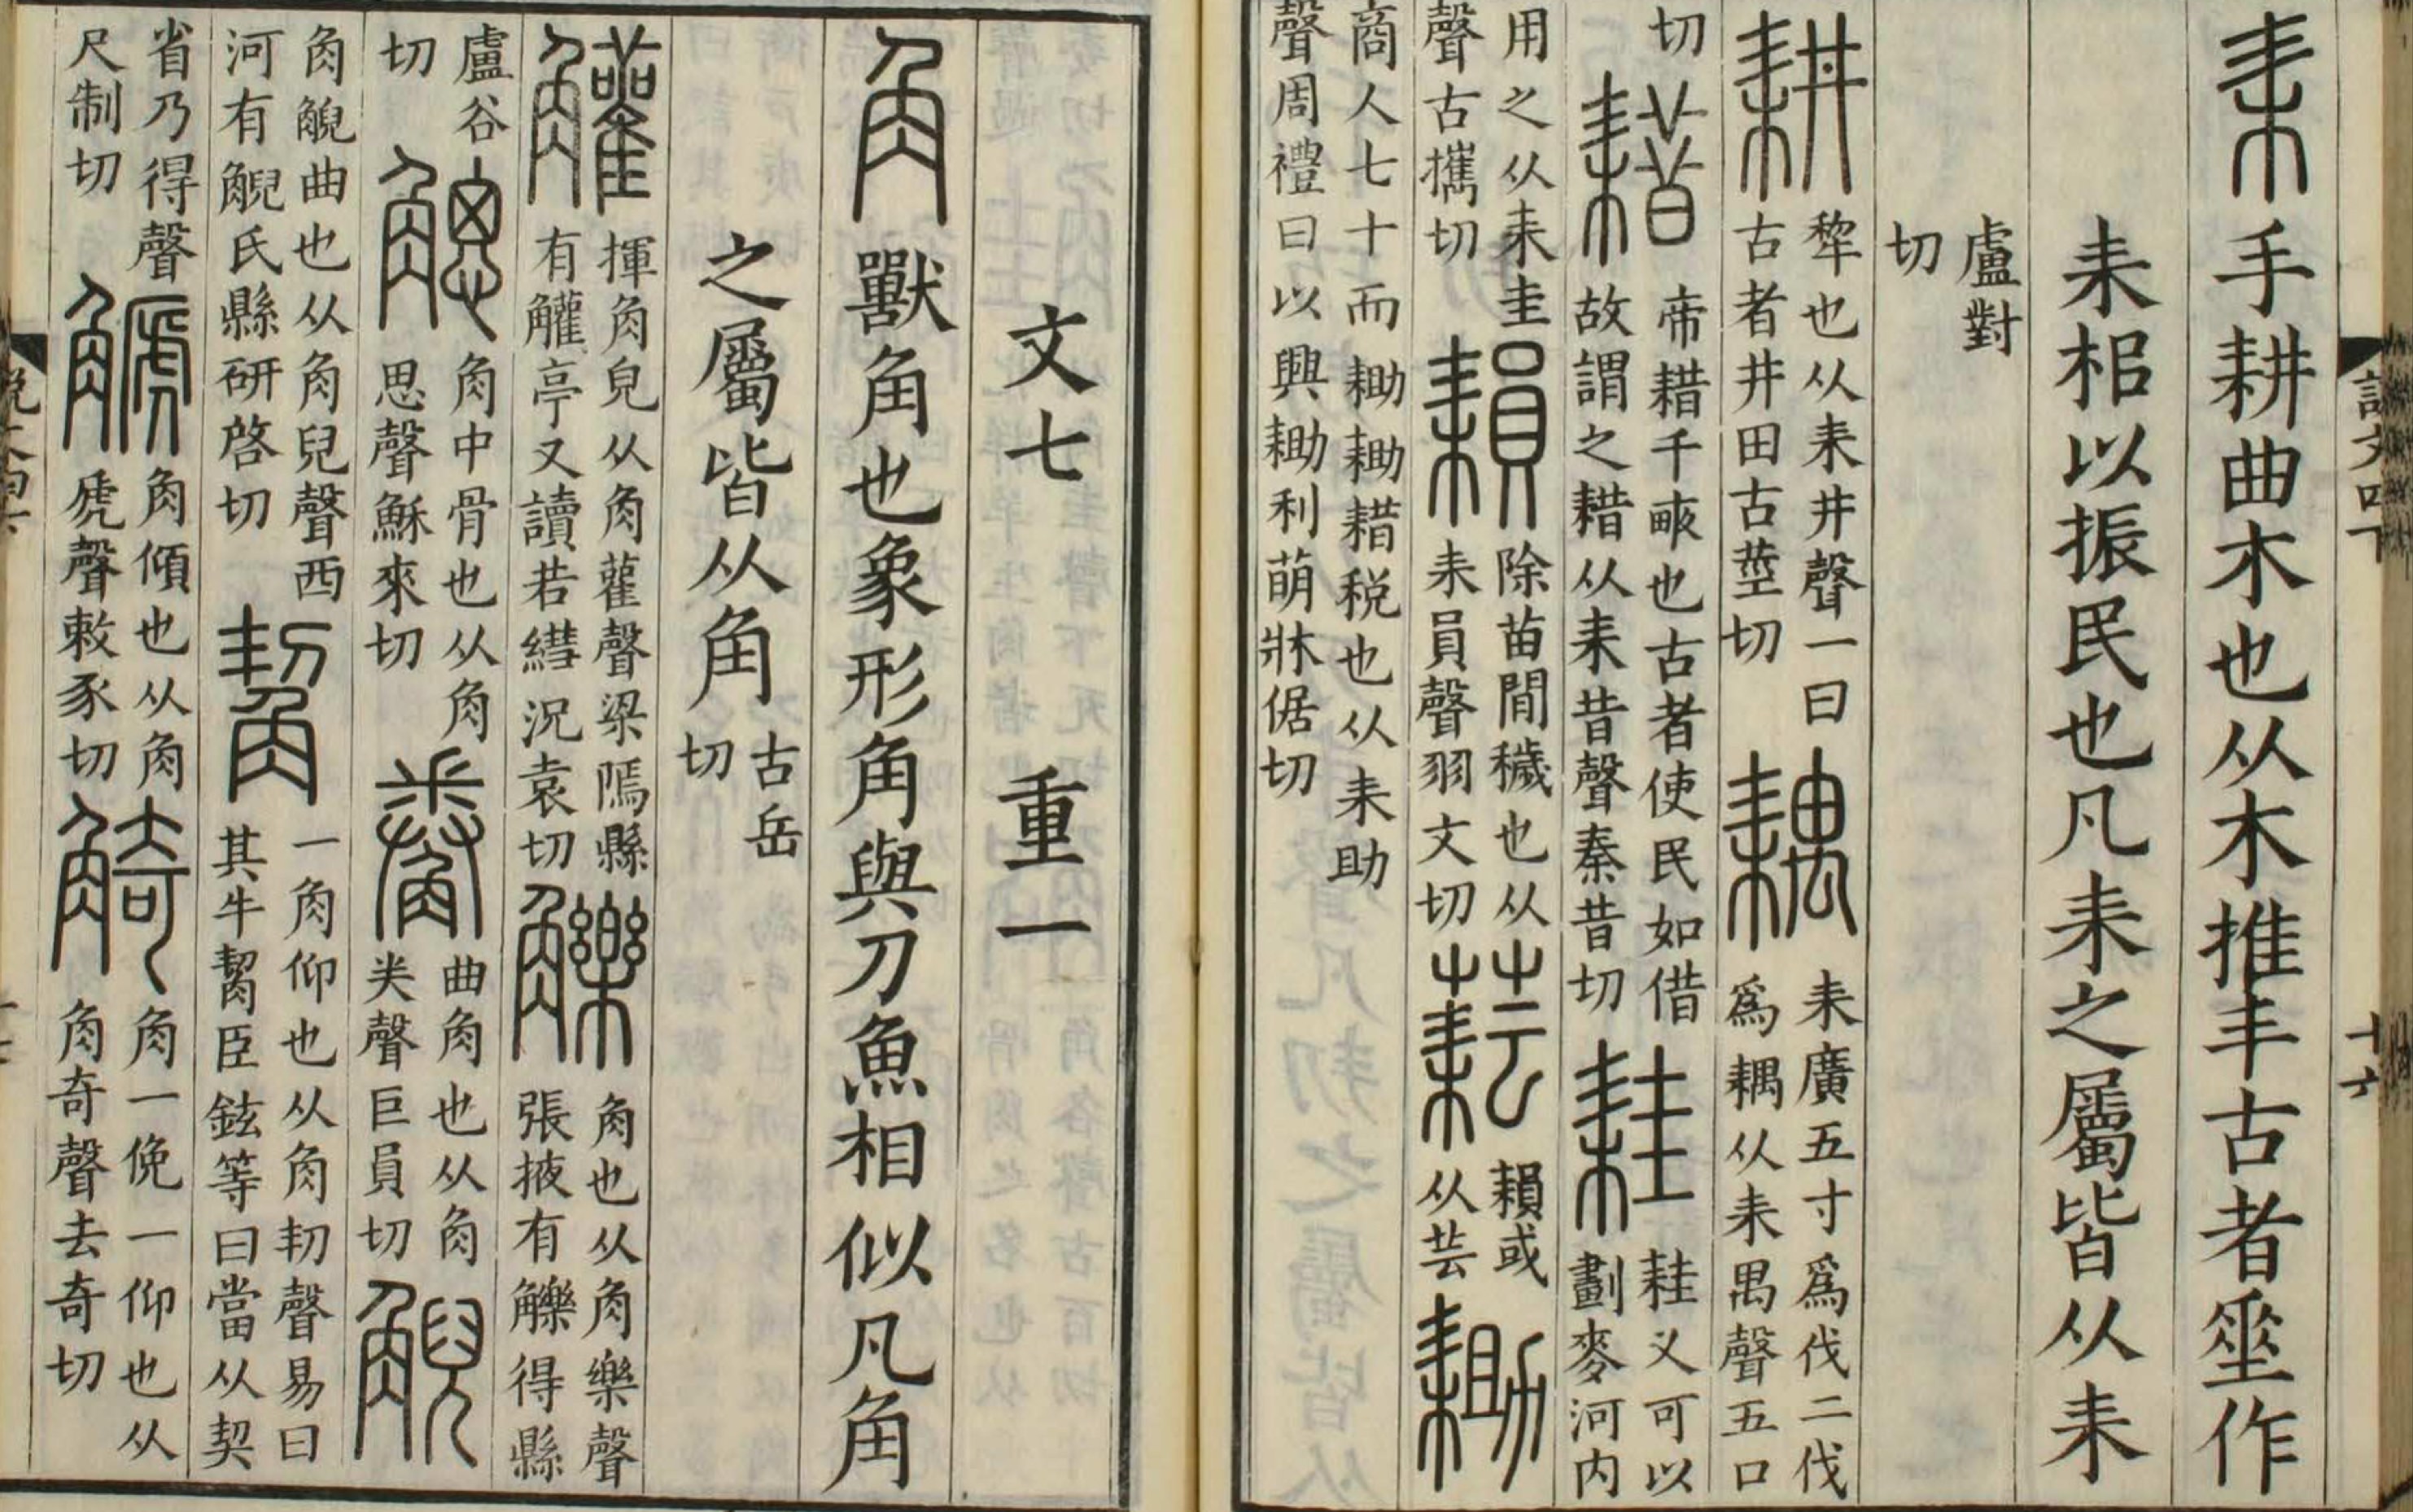 耒手耕曲木也从木推丰古者垂作
耒梠以振民也凡耒之屬皆从耒
盧對
切
耕犂也从耒井聲一曰
古者井田古莖切耦耒廣五寸爲伐二伐
爲耦从耒禺聲五口
切耤帝耤千畮也古者使民如借
故謂之耤从耒昔聲秦昔切䅅䅅叉可以
劃麥河内
用之从耒圭
聲古攜切䎱除苗閒穢也从
耒員聲羽文切䕬䎱或
从芸耡
商人七十而耡耡耤税也从耒助
聲周禮曰以興耡利萌牀倨切
文七 重一
角獸角也象形角與刀魚相似凡角
之屬皆从角古岳
切
觿揮角皃从角雚聲梁隖縣
有觿亭又讀若繕況袁切觻角也从角樂聲
張掖有觻得縣
盧谷
切䚡角中骨也从角
思聲穌來切觠曲角也从角
𢍏聲巨員切觬
角觬曲也从角兒聲西
河有觬氏縣研啓切觢一角仰也从角㓞聲易曰
其牛觢臣鉉等曰當从契
省乃得聲
尺制切䚦角傾也从角
虒聲敕豕切觭角一俛一仰也从
角奇聲去奇切
説文四下
十六